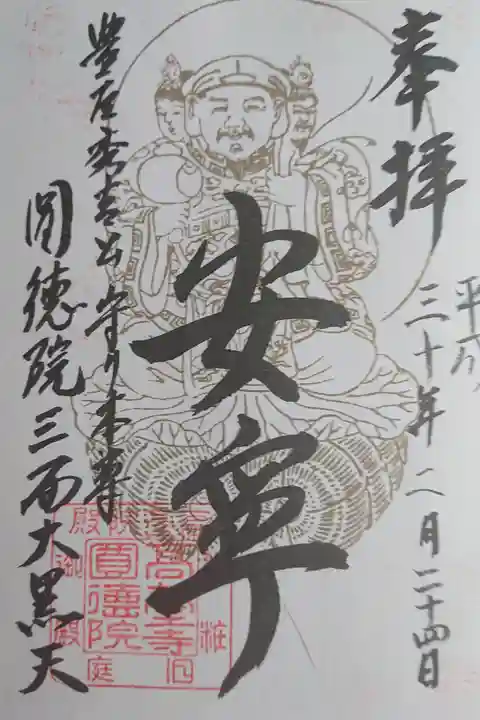 奉拝
平成
三十年二月二十四日
安寧
豊臣秀吉公守り本尊
圓徳院三面大黒天
高台寺
圓徳院